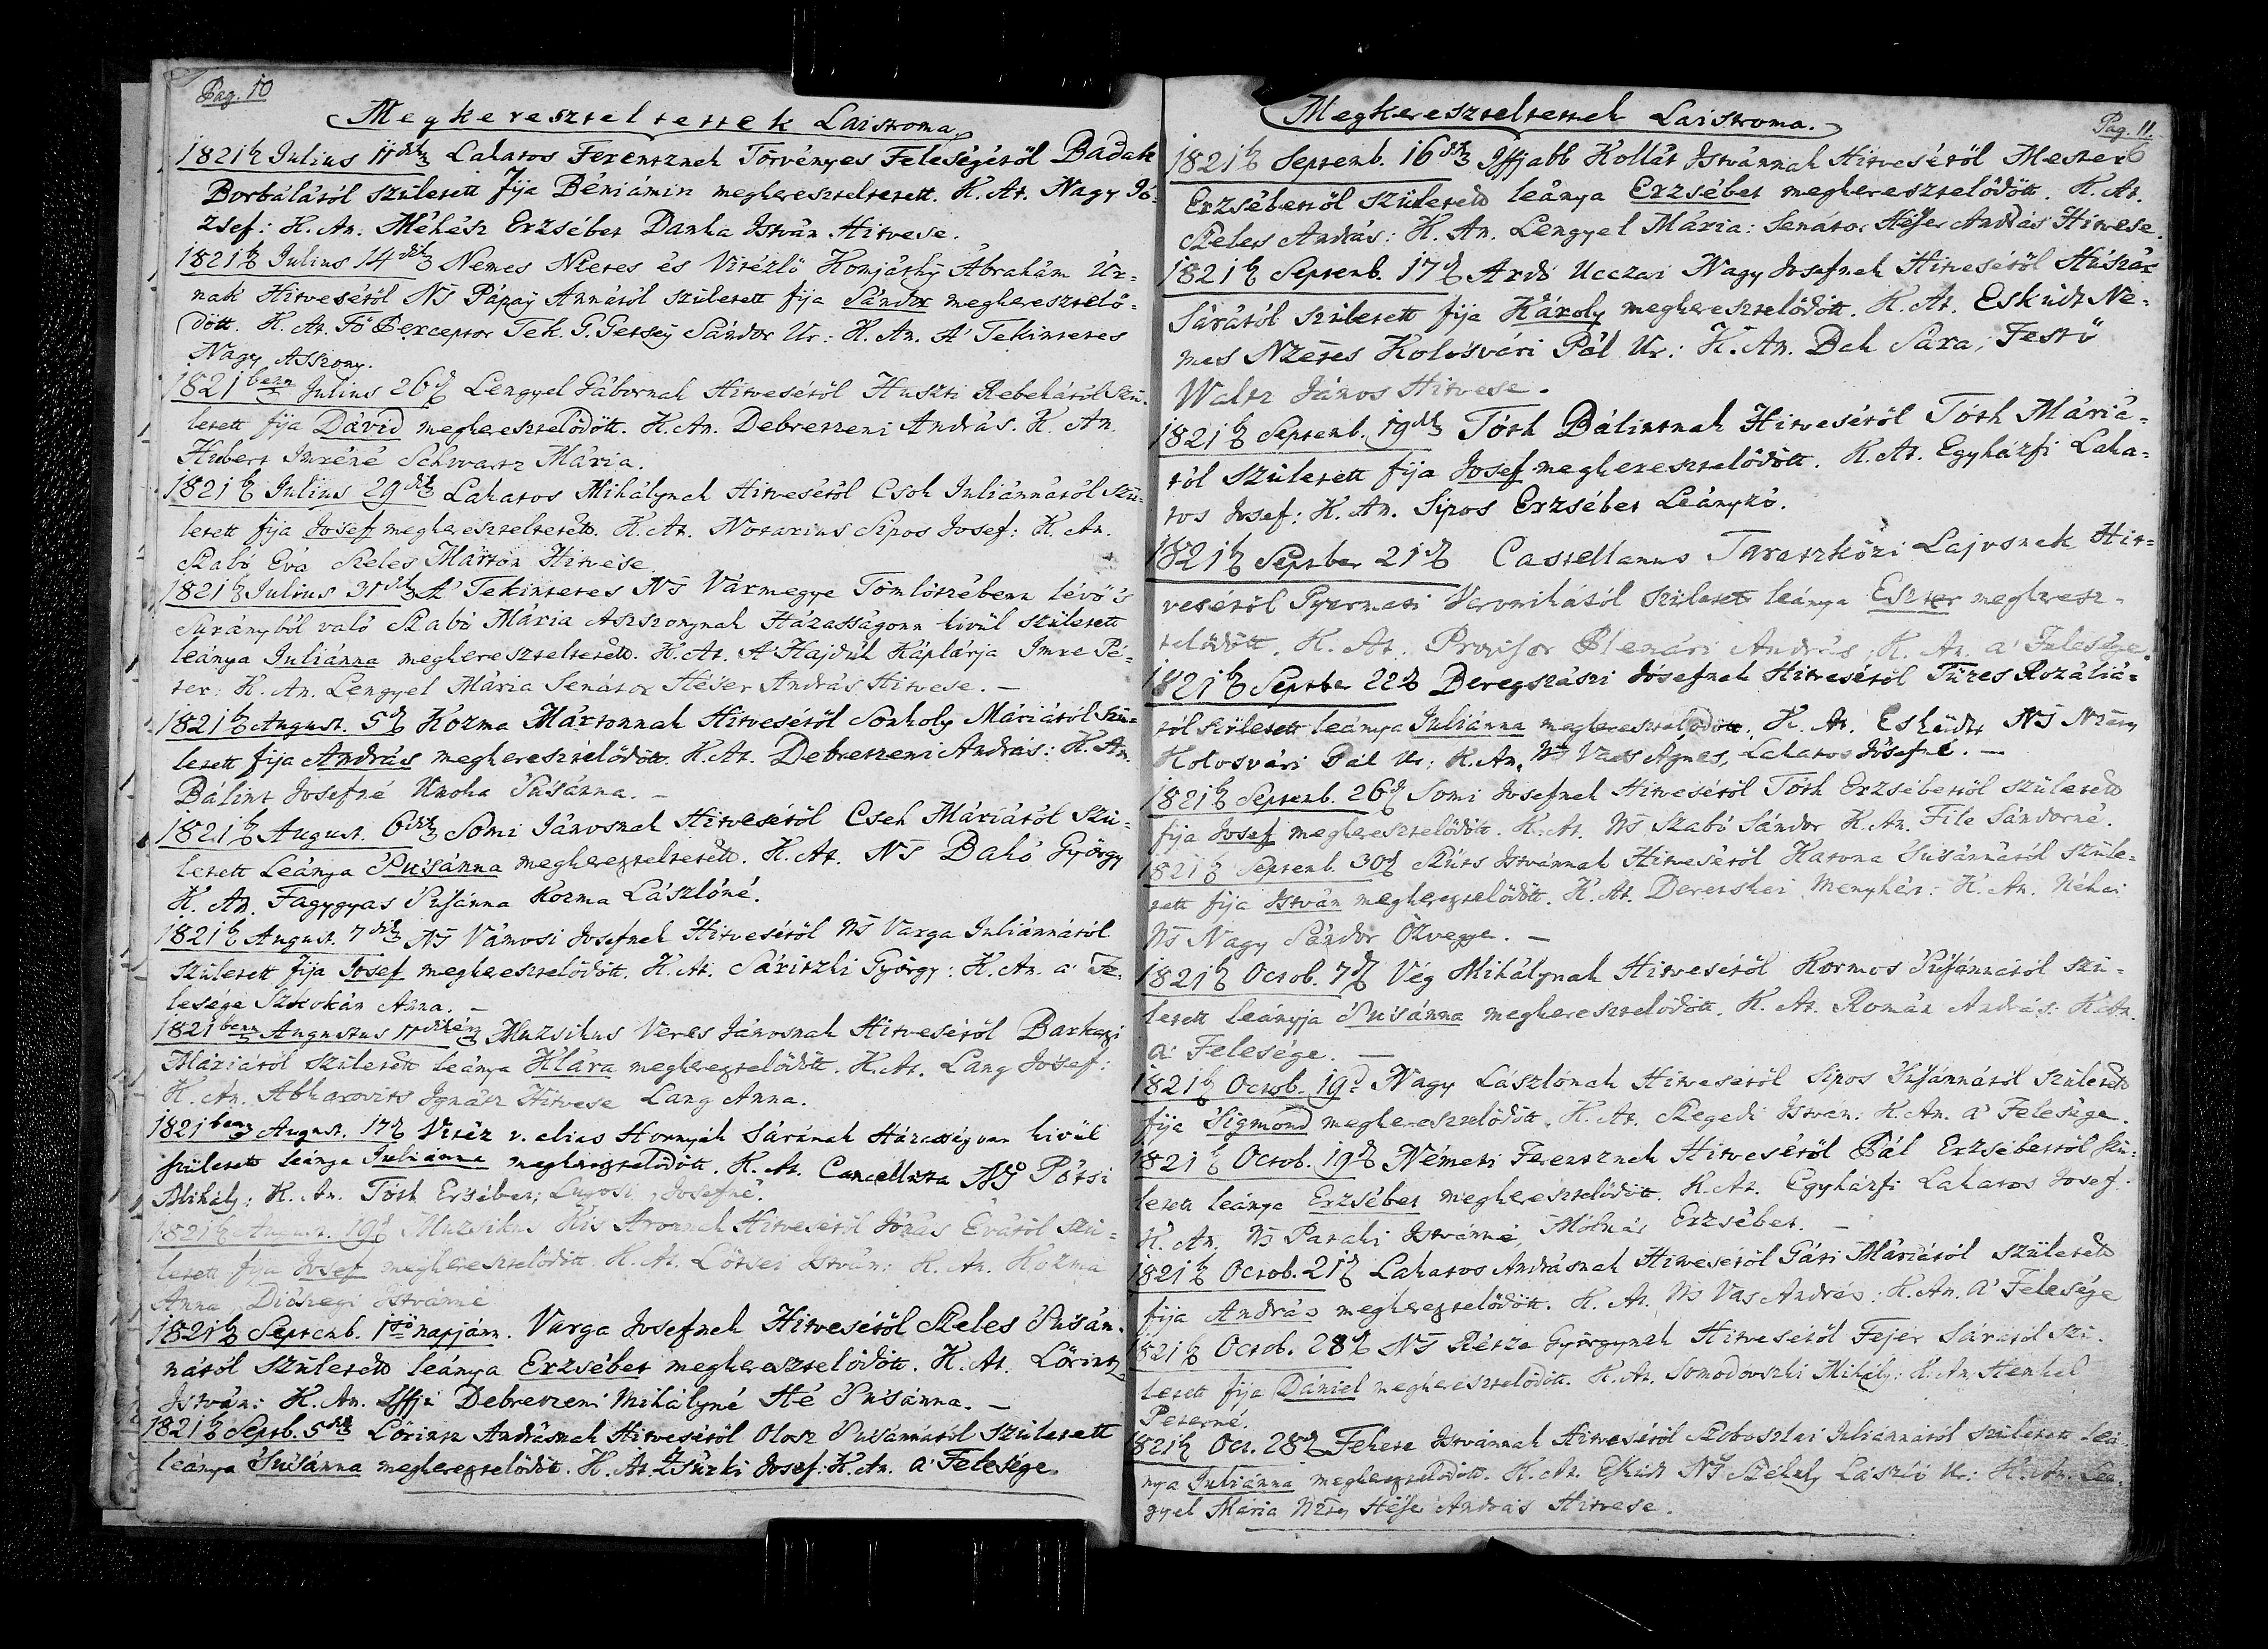 Pag. 10
Megkereszteltettek Laistroma
1821b Julius 11dik Lakatos Ferentznek Törvényes Feleségétöl Badak
Borbálától született fija Béniámin megkereszteltetett. K. At. Nagy Jó-
zsef: K. An. Méhész Erzsébet Danka István Hitvese.
1821b Julius 14dik Nemes Nzetes és Vitézlö Komjáthÿ Ábrahám Úr-
nak Hitvesétöl Ns Pápaÿ Annától született fija Sándor megkeresztelö-
dött. K. At. Fö Perceptor Tek. G. Getseÿ Sándor Ur: K. An. A' Tekintetes
Nagy Asszony.
1821benn Julius 26d Lengyel Gábornak Hitvesétöl Huszti Rebekától szü-
letett fija Dávid megkeresztelödött. K. An. Debretzeni András. K. An.
Hubert Imréné Schwartz Mária.
1821b Julius 29dik Lakatos Mihálynak Hitvesétöl Csok Juliánnától szü-
letett fija Josef megkereszteltetett. K. At. Notarius Sipos Josef: K. An.
Szabó Éva Szeles Márton Hitvese.
1821b Julius 31dik A' Tekintetes Ns Vármegye Tömlötzébenn lévö's
Surányból való Szabó Mária Aszszonynak Házasságonn kivül született
leánya Juliánna megkereszteltetett. K. At. A' Hajdúk Káplárja Imre Pé-
ter: K. An. Lengyel Mária Senátor Héser András Hitvese. —
1821b August. 5d Kozma Mártonnak Hitvesétöl Sonkoly Máriától szü-
letett fija András megkeresztelödött. K. At. Debretzeni András: K. An.
Bálint Josefné Unoka 'Su'sánna. —
1821b August. 6dik Somi Jánosnak Hitvesétöl Cseh Máriától szü-
letett Leánya 'Su'sánna megkereszteltetett. K. At. Ns Bakó György
K. An. Fagygyas 'Su'sánna Kozma Lászlóné.
1821b August. 7dik Ns Vámosi Josefnek Hitvesétöl Ns Varga Juliánnától
született fija Josef megkeresztelödött. K. At. Sáritzki György: K. An. a' Fe-
lesége Anna. —
1821benn Augustus 11dikén Muzsikus Veres Jánosnak Hitvesétöl Barkatzi
Máriától született leánya Klára megkeresztelödött. K. At. Lang Jósef:
K. An. Abharovits Ignátz Hitvese Lang Anna.
1821benn August. 17d Vitéz v. alias Hornyák Sárának Házasságonn kivül
született leánya Juliánna megkeresztelödött. K. At. Cancellista Ns Pótsi
Mihály: K. An. Tóth Ersébet, Lugosi Josefné.
1821b August. 19d Muzsikus Kis Áronnak Hitvesétöl Jónás Évától szü-
letett fija Josef megkeresztelödött. K. At. Lötsei István: K. An. Kozma
Anna, Diószegi Istvánné
1821b Septemb. 1sö napjánn. Varga Josefnek Hitvesétöl Szeles 'Su'sán-
nától született leánya Erzsébet megkeresztelödött. K. At. Lörintz
István: K. An. Iffjú Debretzeni Mihályné Hé 'Su'sánna. —
1821b Septb. 5dik Lörintz Andrásnak Hitvesétöl Olosz 'Su'sánnától született
leánya 'Su'sánna megkeresztelödött. K. At. Zsurki Josef: K. An. a' Felesége.
Pag. 11.
Megkereszteltettek Laistroma.
1821b Septemb. 16dik Iffjabb Kollár Istvánnak Hitvesétöl Mester
Erzsébettöl született leánya Erzsébet megkeresztelödött. K. At.
Szeless András: K. An. Lengyel Mária: Senátor Héser András Hitvese.
1821b Septemb. 17d Ardó Uczai Nagy Josefnek Hitvesétöl Huszár
Sárától született fija Károly megkeresztelödött. K. At. Esküdt Ne-
mes Nzetes Kolosvári Pál Ur: K. An. Bek Sára, Festö
Waltz János Hitvese.
1821b Septemb. 19dik Tóth Bálintnak Hitvesétöl Tóth Máriá-
tól született fija Josef megkeresztelödött. K. At. Egyházfi Laka-
tos Josef: K. An. Sipos Erzsébet Leányzó.
1821b Septber 21d Castellanus Taraszközi Lajosnak Hit-
vesétöl Gyarmati Veronikától született leánya Eszter megkeresz-
telödött. K. At. Provisor Plenári András, K. An. a' Felesége.
1821b Septber 22d Beregszászi Jósefnek Hitvesétöl Füzes Rozáliá-
tól született leánya Juliánna megkeresztelödött. K. At. Esküdt Ns Nzetes
Kolosvári Pál Ur: K. An. Ns Vass Ágnes, Lakatos Jósefné. —
1821b Septemb. 26d Somi Josefnek Hitvesétöl Tóth Erzsébettöl született
fija Josef megkeresztelödött. K. At. Ns Szabó Sándor K. An. File Sándorné.
1821b Septemb. 30d Szüts Istvánnak Hitvesétöl Katona 'Su'sánnától szüle-
tett fija István megkeresztelödött. K. At. Deretskei Menyhért: K. An. Néhai
Ns Nagy Sándor Özvegye. —
1821b Octob. 7d Vég Mihálynak Hitvesétöl Kormos 'Su'sánnától szü-
letett leányja 'Su'sánna megkeresztelödött. K. At. Román András: K. An.
a' Felesége. —
1821b Octob. 19d Nagy Lászlónak Hitvesétöl Sipos 'Su'sánnától született
fija 'Sigmond megkeresztelödött. K. At. Szegedi István: K. An. a' Felesége.
1821b Octob. 19d Németi Ferentznek Hitvesétöl Pál Erzsébettöl szü-
letett leánya Erzsébet megkeresztelödött. K. At. Egyházfi Lakatos Josef.
K. An. Ns Pataki Istvánné, Molnár Erzsébet. —
1821b Octob. 21d Lakatos Andrásnak Hitvesétöl Gáti Máriától született
fija András megkeresztelödött. K. At. Ns Vas András: K. An. A' Felesége
1821b Octob. 28d Ns Rétze Györgynek Hitvesétöl Fejér Sárától szü-
letett fija Dániel megkeresztelödött. K. At. Somodovszki Mihály: K. An. Henkel
Peterné.
1821b Oct. 28d Fekete Istvánnak Hitvesétöl Szoboszlai Juliánnától született leá-
nya Juliánna megkeresztelödött. K. At. Esküdt Ns Székely László Ur: K. An. Len-
gyel Mária Nzetes Hése András Hitvese.